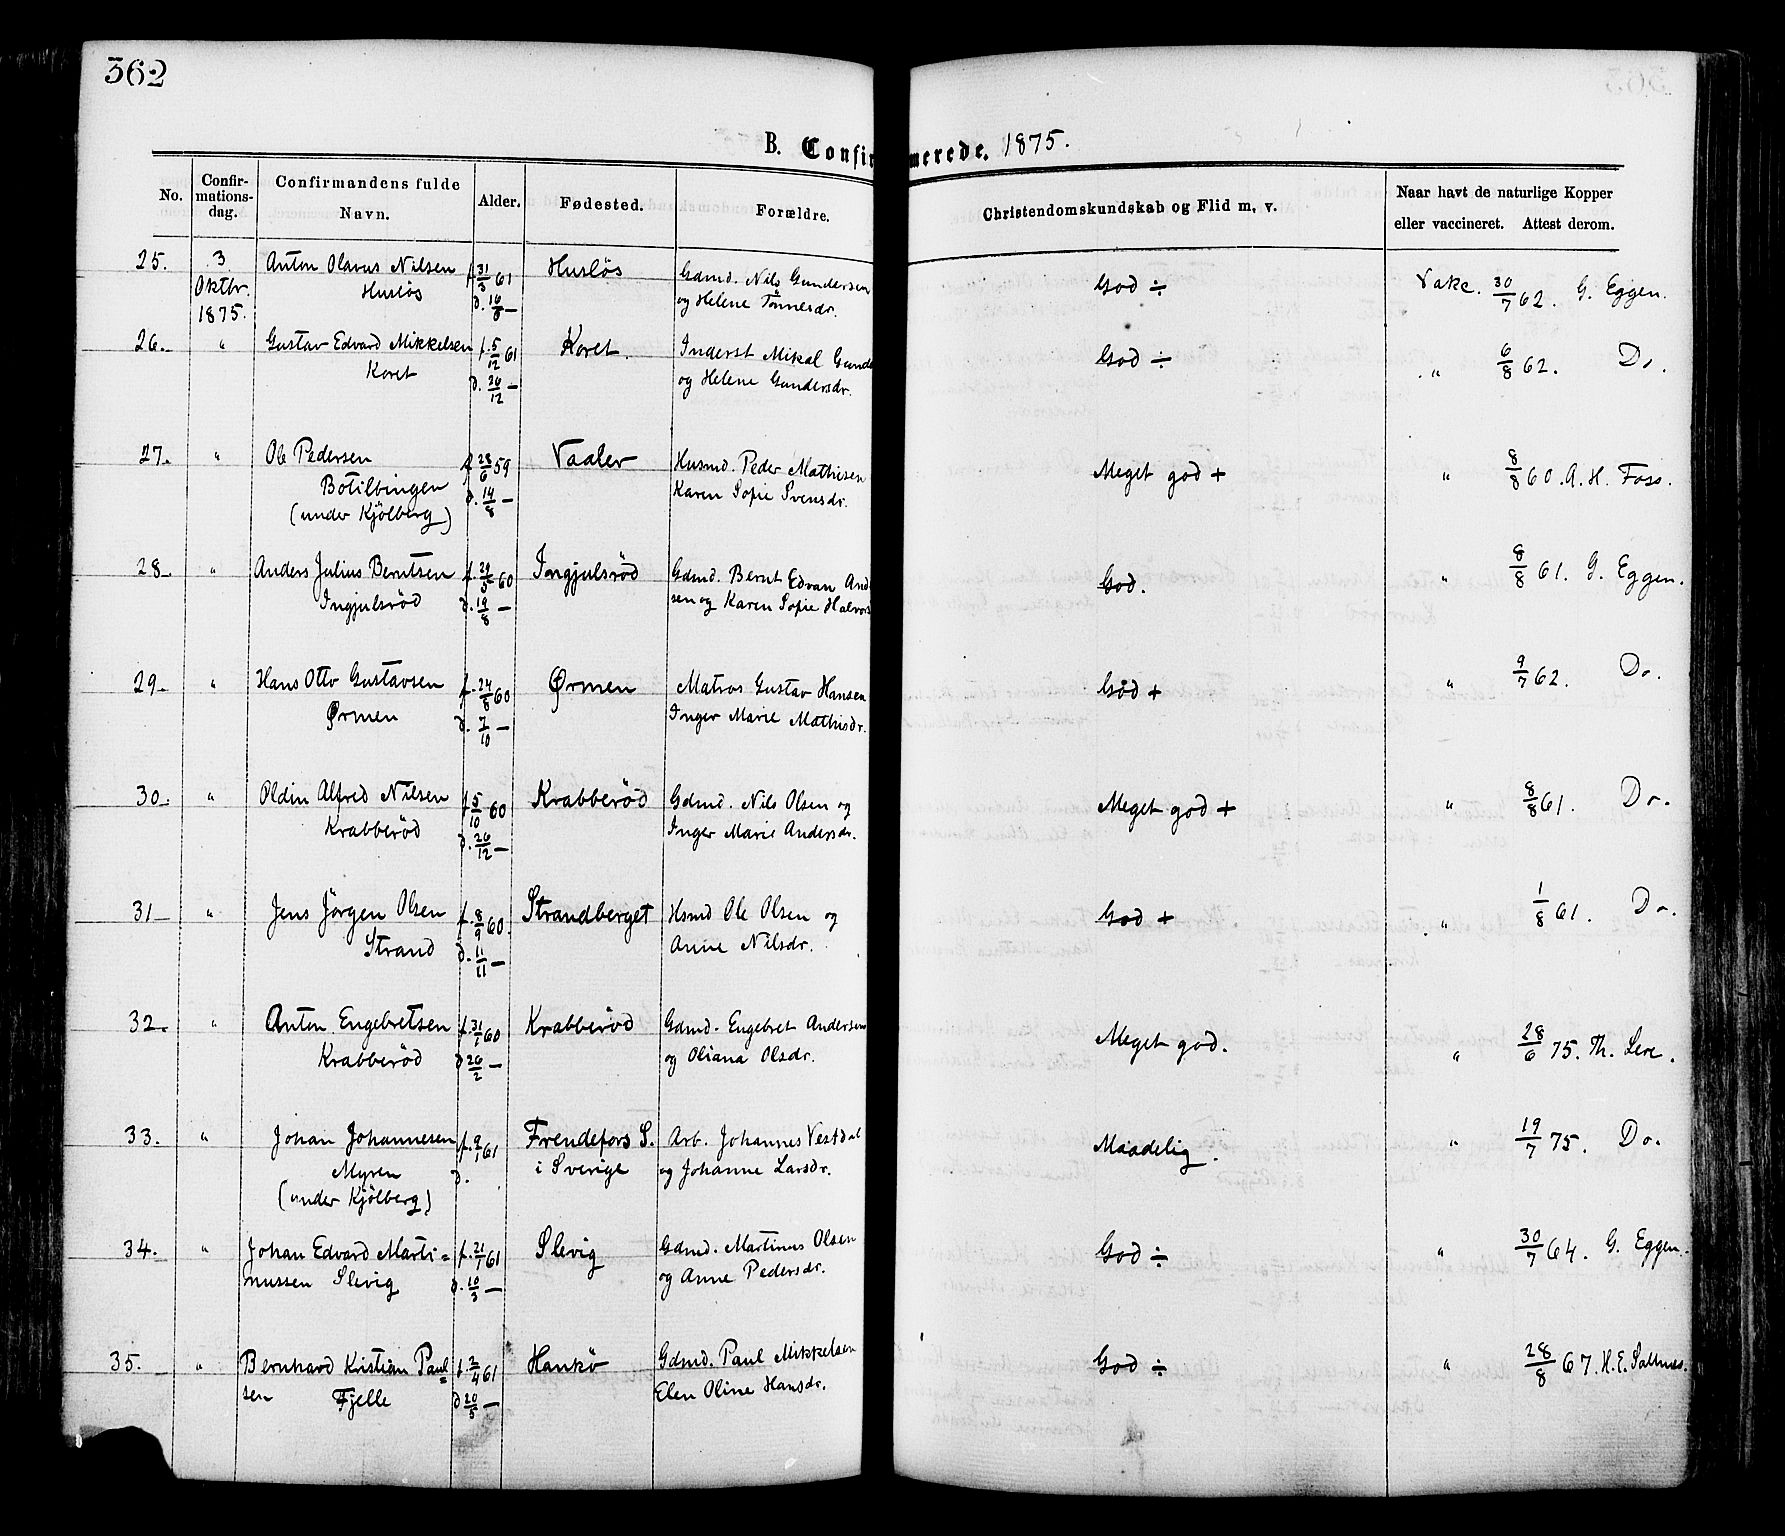 362
B. Confir merede. 1875.
No. Confir-mations-dag. Confirmandens fulde Navn. Alder. Fødested. Forældre. Christendomskundskab og Flid m. v. Naar havt de naturlige Kopper eller vaccineret. Attest derom.
25. 3 Anton Olavus Nilsen f. 31/3 61 Husløs Gdmd. Nils Gundersen God ÷ Vakc. 30/7 62. G. Eggen.
Oktbr. Husløs d. 16/8 — og Helene Tönnesdr.
1875.
26. " Gustav Edvard Mikkelsen f. 5/12 61 Koret. Inderst Mikal Gunde God ÷ " 6/8 62. Do.
Koret d. 26/12 — og Helene Gundersdr.
27. " Ole Pedersen f. 28/6 59 Vaaler Husmd. Peder Mathiesen Meget god + " 8/8 60. A. H. Foss.
Botilbingen d. 14/8 — Karen Sofie Svensdr.
(under Kjölberg)
28. " Anders Julius Berntsen f. 29/5 60 Ingjulsröd Gdmd. Bernt Edvan And God. " 8/8 61. G. Eggen.
Ingjulsröd d. 19/8 — sen og Karen Sofie Halvors
29. " Hans Otto Gustavsen f. 24/8 60 Ørmen Matros Gustav Hansen God + " 9/7 62. Do.
Ørmen d. 7/10 — Inger Marie Mathisdr.
30. " Oldin Alfred Nilsen f. 5/10 60 Krabberöd Gdmd. Nils Olsen og Meget god + " 8/8 61. Do.
Krabberöd d. 26/12 — Inger Marie Andersdr.
31 " Jens Jörgen Olsen f. 8/9 60. Strandberget Hsmd Ole Olsen og God + " 1/8 61. Do.
Strand d. 11/11 — Anne Nilsdr.
32. " Anton Engebretsen f. 31/1 60 Krabberöd Gdmd. Engebret Andersen Meget god. " 28/6 75. Th. Lere.
Krabberöd d 26/2 — og Oliana Olsdr.
33. " Johan Johannesen f. 2/1 61 Frendefors S. Arb. Johannes Vestdal Maadelig. " 19/7 75. Do.
Myren d. i Sverige og Johanne Larsdr.
(under Kjölberg)
34. " Johan Edvard Marti= f. 21/1 61 Slevig Gdmd. Martinus Olsen God ÷ " 30/7 64. G. Eggen.
nussen Slevig d. 10/3 — og Anne Pedersdr.
35. " Bernhard Kristian Paul= f. 2/4 61 Hankö Gdmd. Paul Mikkelsen God ÷ " 28/8 67. H. E. Saltnes.
sen Fjelle d 20/5 — Elen Oline Hansdr.